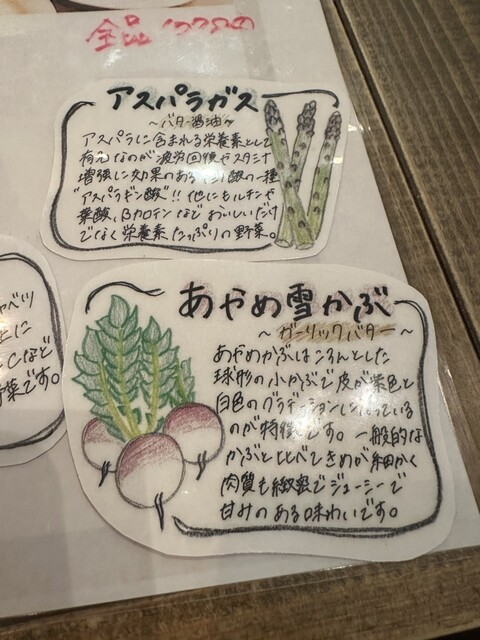 全品
アスパラガス
～バター醤油～
アスパラに含まれる栄養素として
有名なのが疲労回復やスタミナ
増強に効果のあるアミノ酸の一種
"アスパラギン酸"!!他にもルチンや
葉酸、βカロテンなどおいしいだけ
でなく栄養素たっぷりの野菜。
ャベツ
上に
Cなど
野菜です。
あやめ雪かぶ
～ガーリックバター～
あやめかぶはころんとした
球形の小かぶで皮が紫色と
白色のグラデーションになっている
のが特徴です。一般的な
かぶと比べてきめが細かく
肉質も緻密でジューシーで
甘みのある味わいです。